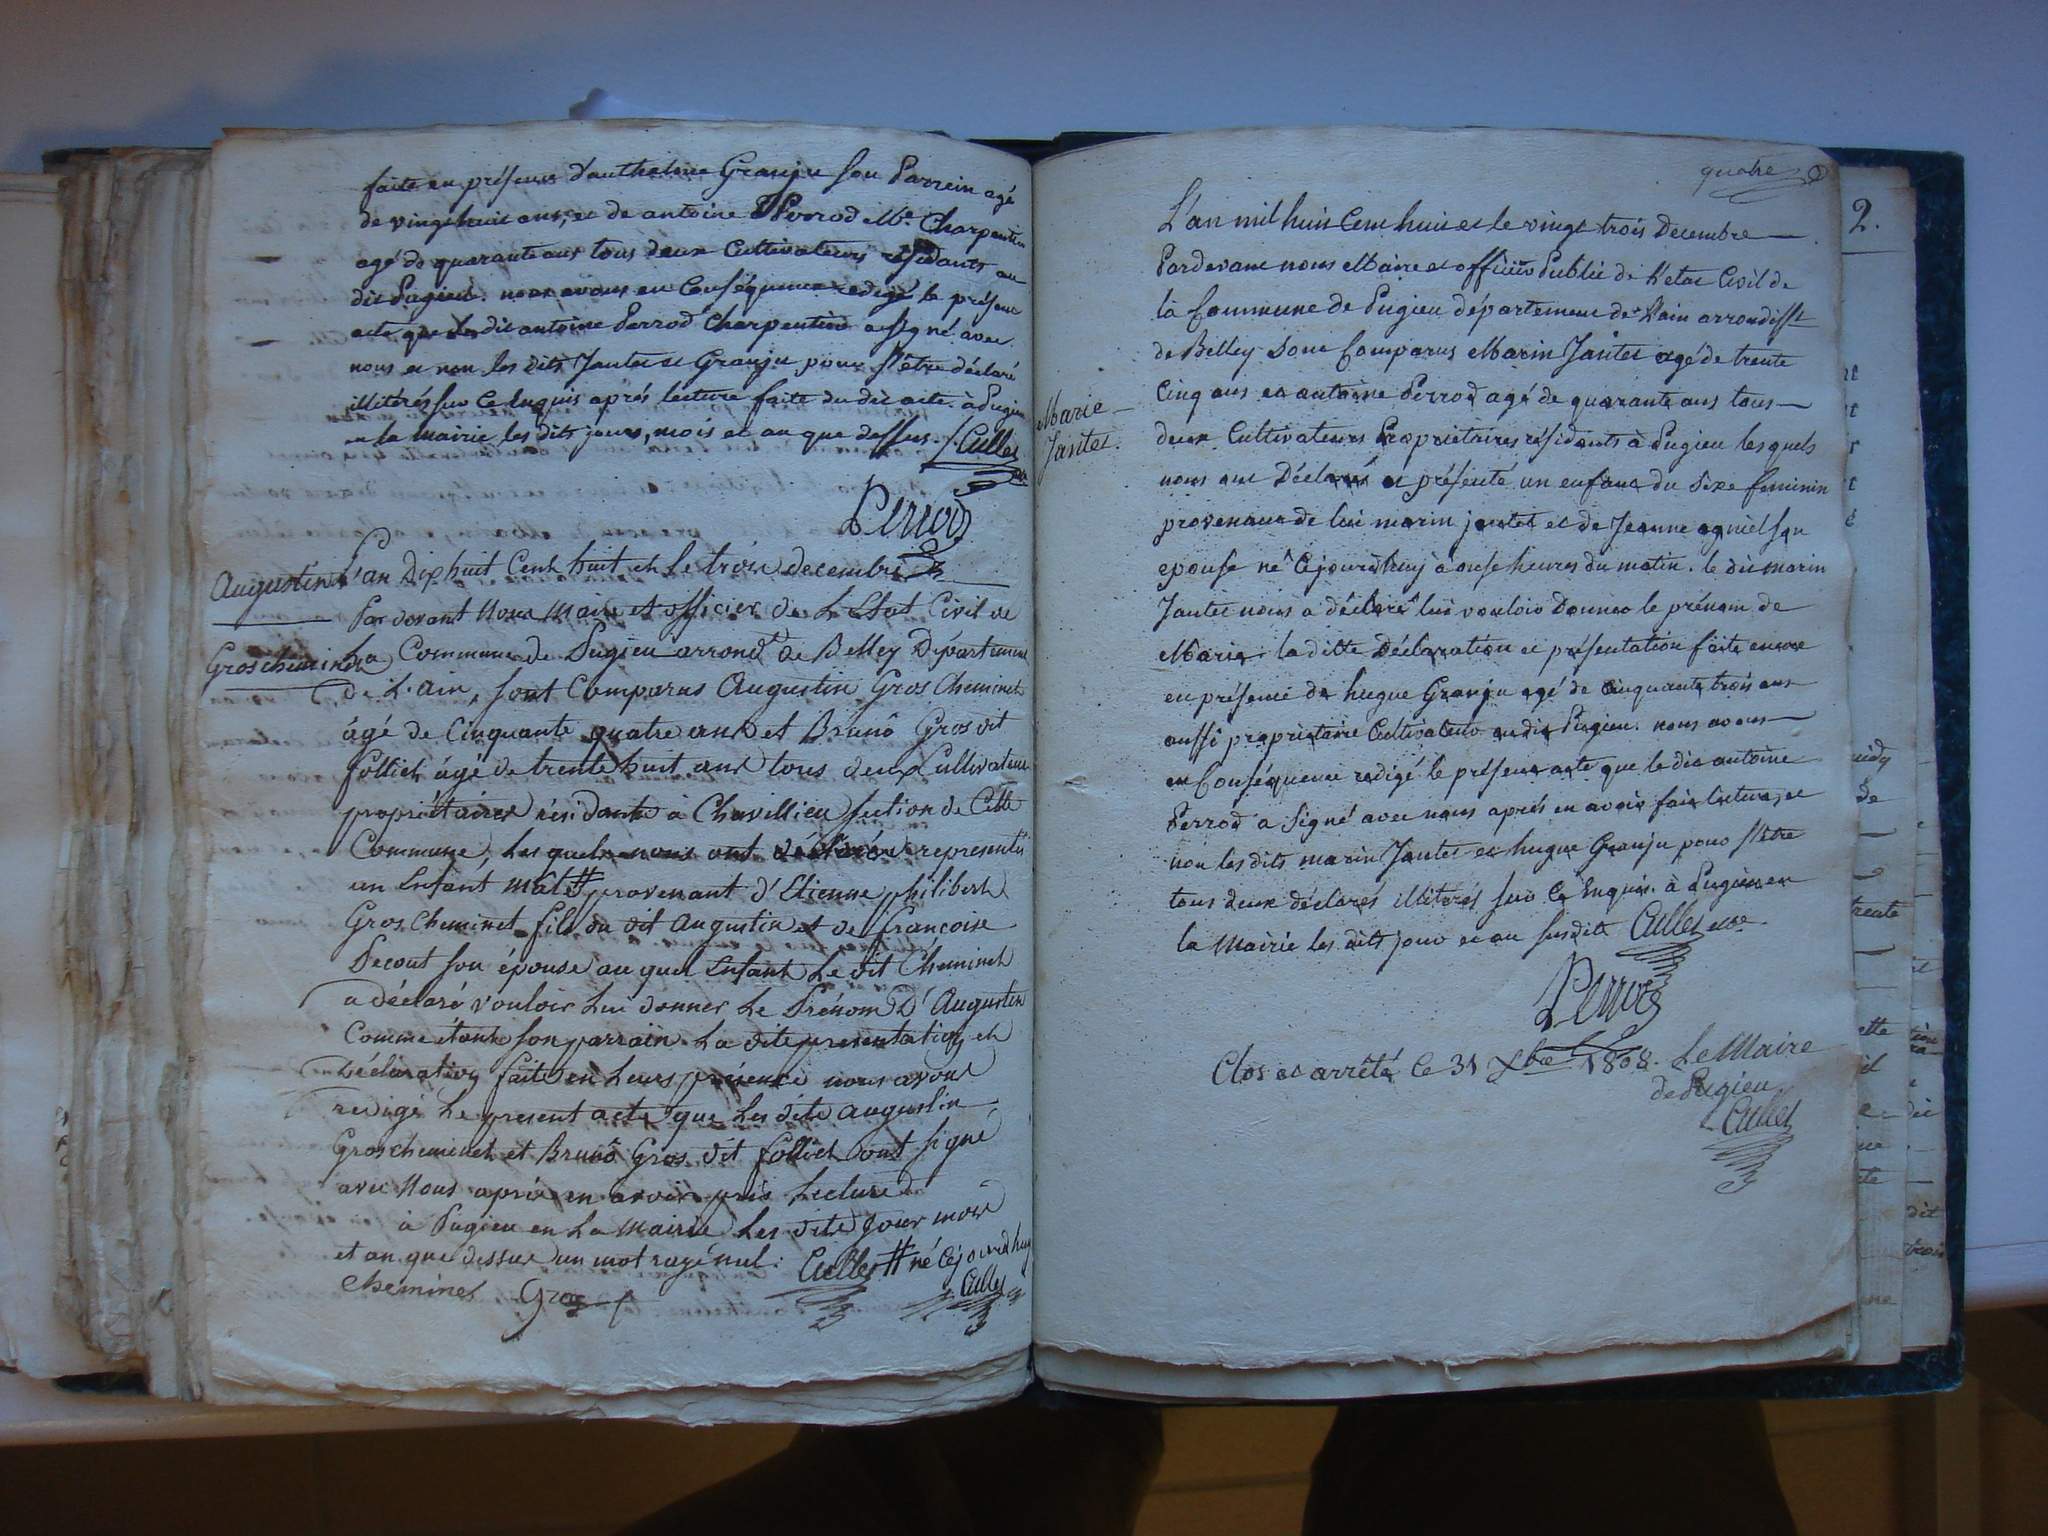 faite en présence d'anthelme Granju son Parrein agé
de vingt huit ans, et de antoine Perrod Me. Charpentier
agé de quarante ans tous deux Cultivateurs résidants au
dit Pugieu. nous avons en Conséquence redigé le présent
acte que le dit antoine Perrod Charpentier a signé avec
nous et non les dits Jantet et Granju pour s'être déclaré
illitérés sur ce Enquis aprés lecture faite du dit acte. à Pugieu
en la mairie les dits jours, mois et an que dessus. Cullet
Perrod
Augustin
Groscheminet
L'an Dix huit Cent huit et le trois decembre
Par devant Nous Maire et officier de L'Etat Civil de
La Commune de Pugieu arrond. de Belley Département
de L'ain, sont Comparus Augustin Gros Cheminet
âgé de Cinquante quatre ans et Brunô Gros dit
follict âgé de trente huit ans tous deux Cultivateurs
propriétaires résidants à Chavillieu section de Cette
Commune, Les quels nous ont representé
un Enfant mâle # provenant d'Etienne philibert
Gros Cheminet fils du dit Augustin et de françoise
Decout son épouse au quel Enfant Le dit Cheminet
a déclaré vouloir Lui donner Le Prénom D'Augustin
Comme étant son parrain. La dite presentation et
Déclaration faite en Leurs présence nous avons
redigé Le present acte que Les dits augustin
Groscheminet et Brunô Gros dit follict ont signé
avec Nous aprés en avoir pris Lecture
à Pugieu en La Mairie Les dits Jour mois
et an que dessus un mot rayé nul: Cullet # né Cejourd'huy
Cheminet Gros Cullet
quatre
2.
Marie
Jantet
L'an mil huit Cent huit et le vingt trois Decembre
Pardevant nous Maire et officier Public de l'etat Civil de
la Commune de Pugieu département de l'ain arrondisst
de Belley sont Comparus Marin Jantet agé de trente
Cinq ans et antoine Perrod agé de quarante ans tous
deux Cultivateurs Proprietaires résidants à Pugieu lesquels
nous ont Déclaré et présenté un enfant du Sexe feminin
provenant de lui marin jantet et de Jeanne agniel son
epouse né Cejourd'huy à onse heures du matin. le dit marin
Jantet nous a déclaré lui vouloir donner le prénom de
Marie. la ditte Déclaration et présentation faite encore
en présence de hugue Granju agé de cinquante trois ans
aussi proprietaire Cultivateur audit Pugieu. nous avons
en Conséquence redigé le présent acte que le dit antoine
Perrod a Signé avec nous aprés en avoir fait lecture, et
non les dits marin Jantet et hugue Granju pour s'être
tous deux déclarés illiterés sur ce Enquis. à Pugieu en
la Mairie les dits jour et an susdits Cullet
Perrod
Clos et arrêté le 31 Xbre 1808. Le Maire
de Pugieu
Cullet